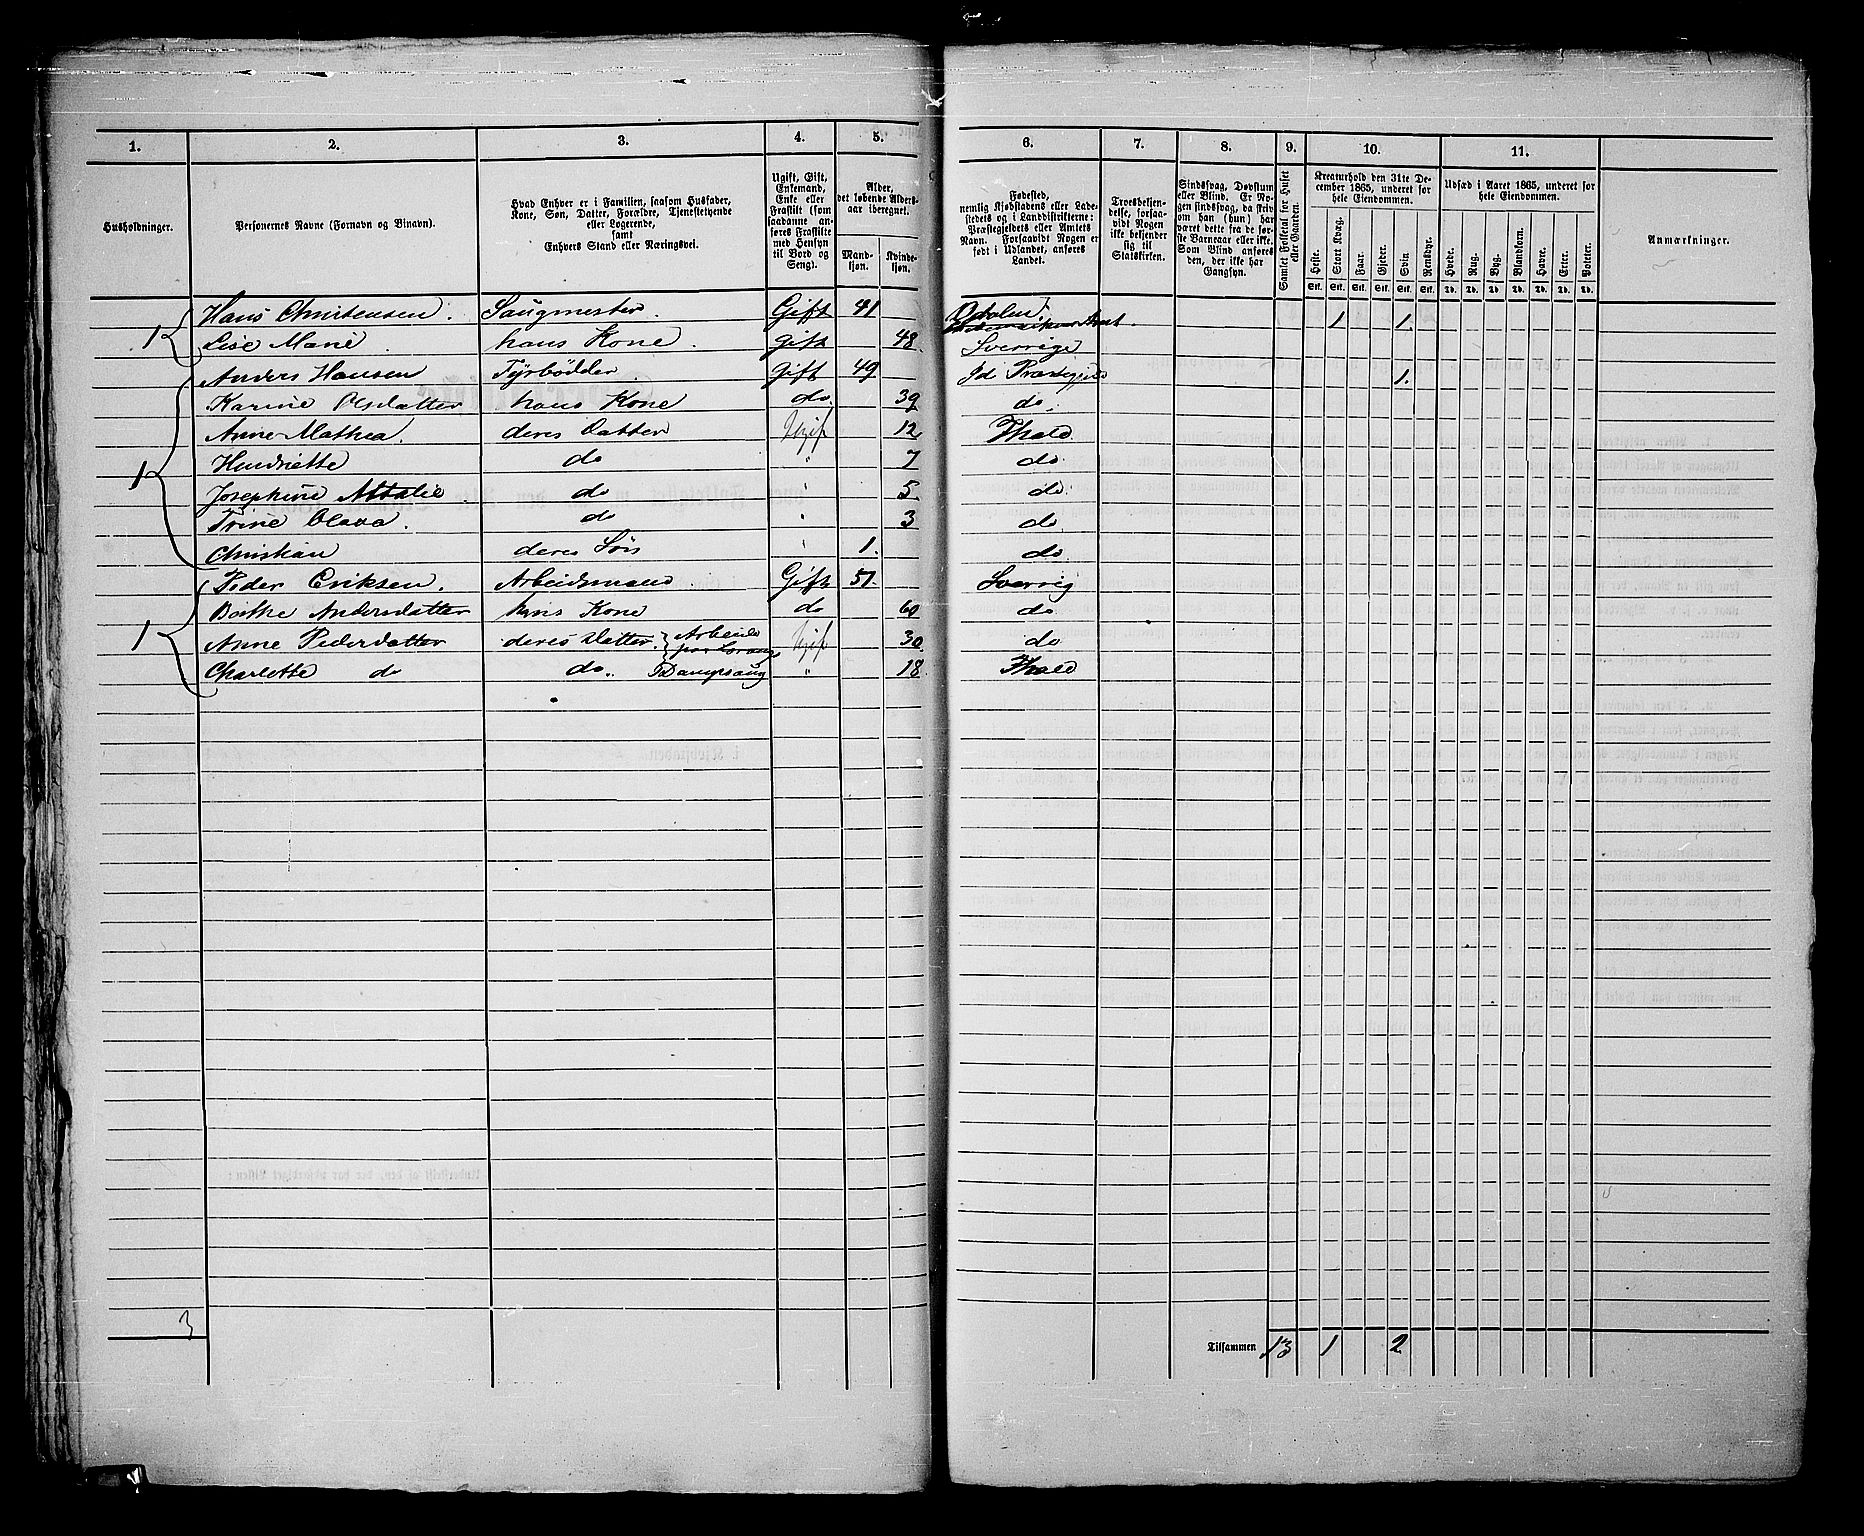 1. 2. 3. 4. 5. 6. 7. 8. 9. 10. 11.
Husholdninger.
Personernes Navne (Fornavn og Binavn).
Hvad Enhver er i Familien, saasom Husfader,
Kone, Søn, Datter, Forældre, Tjenestetyende
eller Logerende,
samt
Enhvers Stand eller Næringsvei.
Ugift, Gift,
Enkemand,
Enke eller
Fraskilt (som
saadanne an-
føres Fraskilte
med Hensyn
til Bord og
Seng).
Alder,
det løbende Alders-
aar iberegnet.
Mand-
kjøn.
Kvinde-
kjøn.
Fødested,
nemlig Kjøbstadens eller Lade-
stedets og i Landdistrikterne:
Præstegjeldets eller Amtets
Navn. Forsaavidt Nogen er
født i Udlandet, anføres
Landet.
Troesbekjen-
delse, forsaa-
vidt Nogen
ikke bekjender
sig til
Statskirken.
Sindssvag, Døvstum
eller Blind. Er No-
gen sindssvag, da skriv
om han (hun) har
været dette fra de før-
ste Barneaar eller ikke.
Som Blind anføres
den, der ikke har
Gangsyn.
Samlet Folketal for Huset
eller Gaarden.
Kreaturhold den 31te De-
cember 1865, underet for
hele Eiendommen.
Heste. Stort Kvæg. Faar. Gjeder. Svin. Rensdyr.
Stk. Stk. Stk. Stk. Stk. Stk.
Udsæd i Aaret 1865, underet for
hele Eiendommen.
Hvede. Rug. Byg. Blandkorn. Havre. Erter. Poteter.
Td. Td. Td. Td. Td. Td. Td.
Anmærkninger.
1 Hans Christensen. Saugmester. Gift 41 1 1.
Lise Marie hans Kone. Gift 48. Sverrige
1 Anders Hansen Fyrbødder Gift 49 Id Præstegjeld 1.
Karine Olsdatter hans Kone do. 39 do.
Anne Mathea. deres Datter Ugift 12 Fhald
Hendriette do " 7 do.
Josephine Attalie do " 5 do.
Trine Olava. do " 3 do
Christian deres Søn " 1. do
1 Peder Eriksen. Arbeidsmand. Gift 51. Sverrig
Berthe Andersdatter hans Kone do 60 do
Anne Pedersdatter deres Datter. Arbeide Ugift 30 do
Charlotte do do. Dampsaug " 18. Fhald
3 Tilsammen 13 1 2